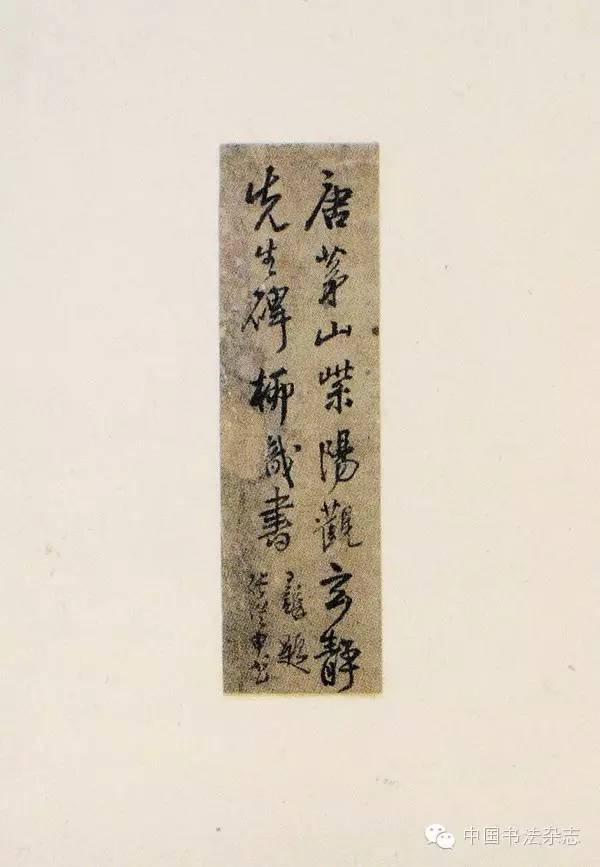 唐茅山紫陽觀玄靜
先生碑柳識書
題
張從申書
中国书法杂志